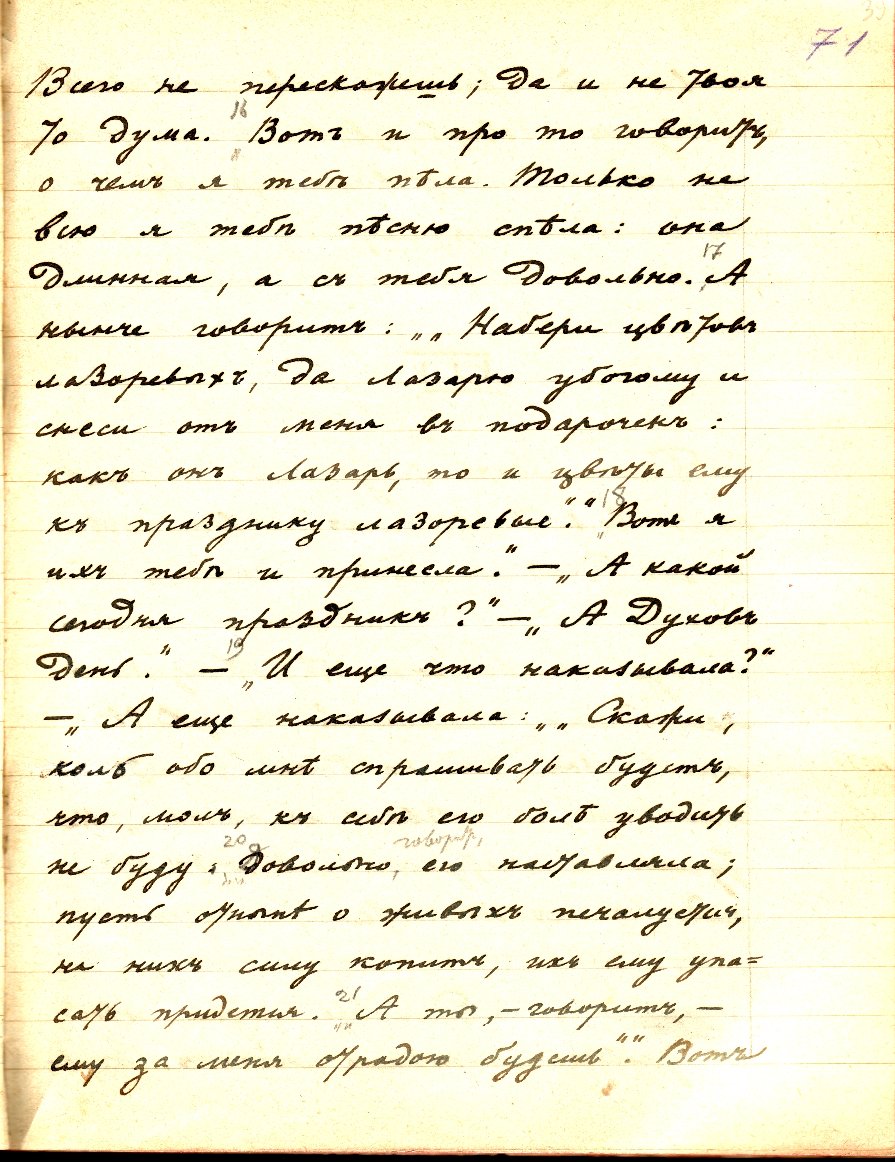 71
Всего не перескажешь; да и не твоя
то дума. 16 „Вотъ и про то говоритъ,
о чемъ я тебѣ пѣла. Только не
всю я тебѣ пѣсню спѣла: она
длинная, а съ тебя довольно. 17 А
нынче говоритъ: „„Набери цвѣтовъ
лазоревыхъ, да Лазарю убогому и
снеси отъ меня въ подарочекъ:
какъ онъ Лазарь, то и цвѣты ему
къ празднику лазоревые“.“ 18 „Вотъ я
ихъ тебѣ и принесла.“ — „А какой
сегодня праздникъ?“ — „А Духовъ
день.“ — 19 „И еще что наказывала?“
— „А еще наказывала: „„Скажи,
коль обо мнѣ спрашивать будетъ,
что, молъ, къ себѣ его болѣ уводить
20 говоритъ,
не буду: довольно, его наставляла;
пусть отнынѣ о живыхъ печалуется,
на нихъ силу копитъ, ихъ ему упа=
сать придется. 21 „„А ты, — говоритъ, —
ему за меня отрадою будешь““. Вотъ